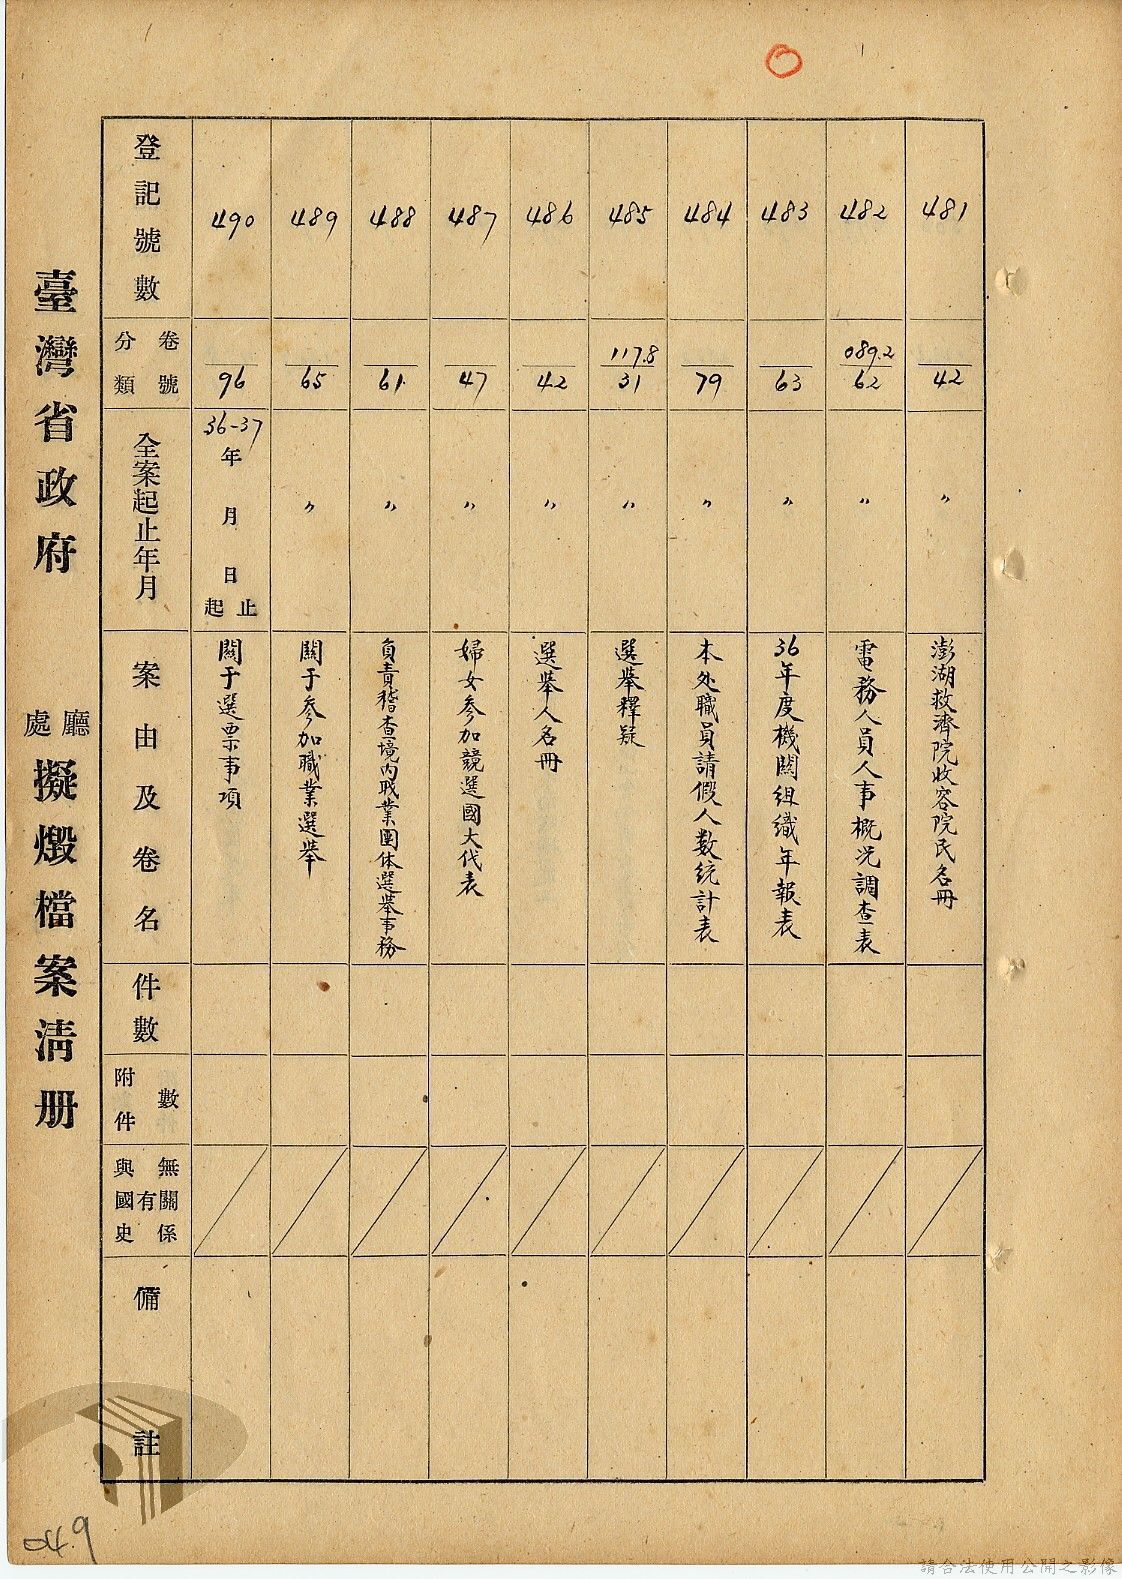 臺灣省政府 廳處 擬燬檔案清册
登記號數
分類 卷號
全案起止年月
案由及卷名
件數
附件 數
與國史 有 無關係
備註
490
96
36-37
年 月 日
起 止
關于選票事項
489
65
〃
關于參加職業選舉
488
61
〃
負責稽查境內职業團体選舉事務
487
47
〃
婦女參加競選國大代表
486
42
〃
選舉人名冊
485
117.8
31
〃
選舉釋疑
484
79
〃
本处職員請假人数统計表
483
63
〃
36年度機関组織年報表
482
089.2
62
〃
電務人員人事概况調查表
481
42
〃
澎湖救濟院收容院民名冊
049
請合法使用公開之影像